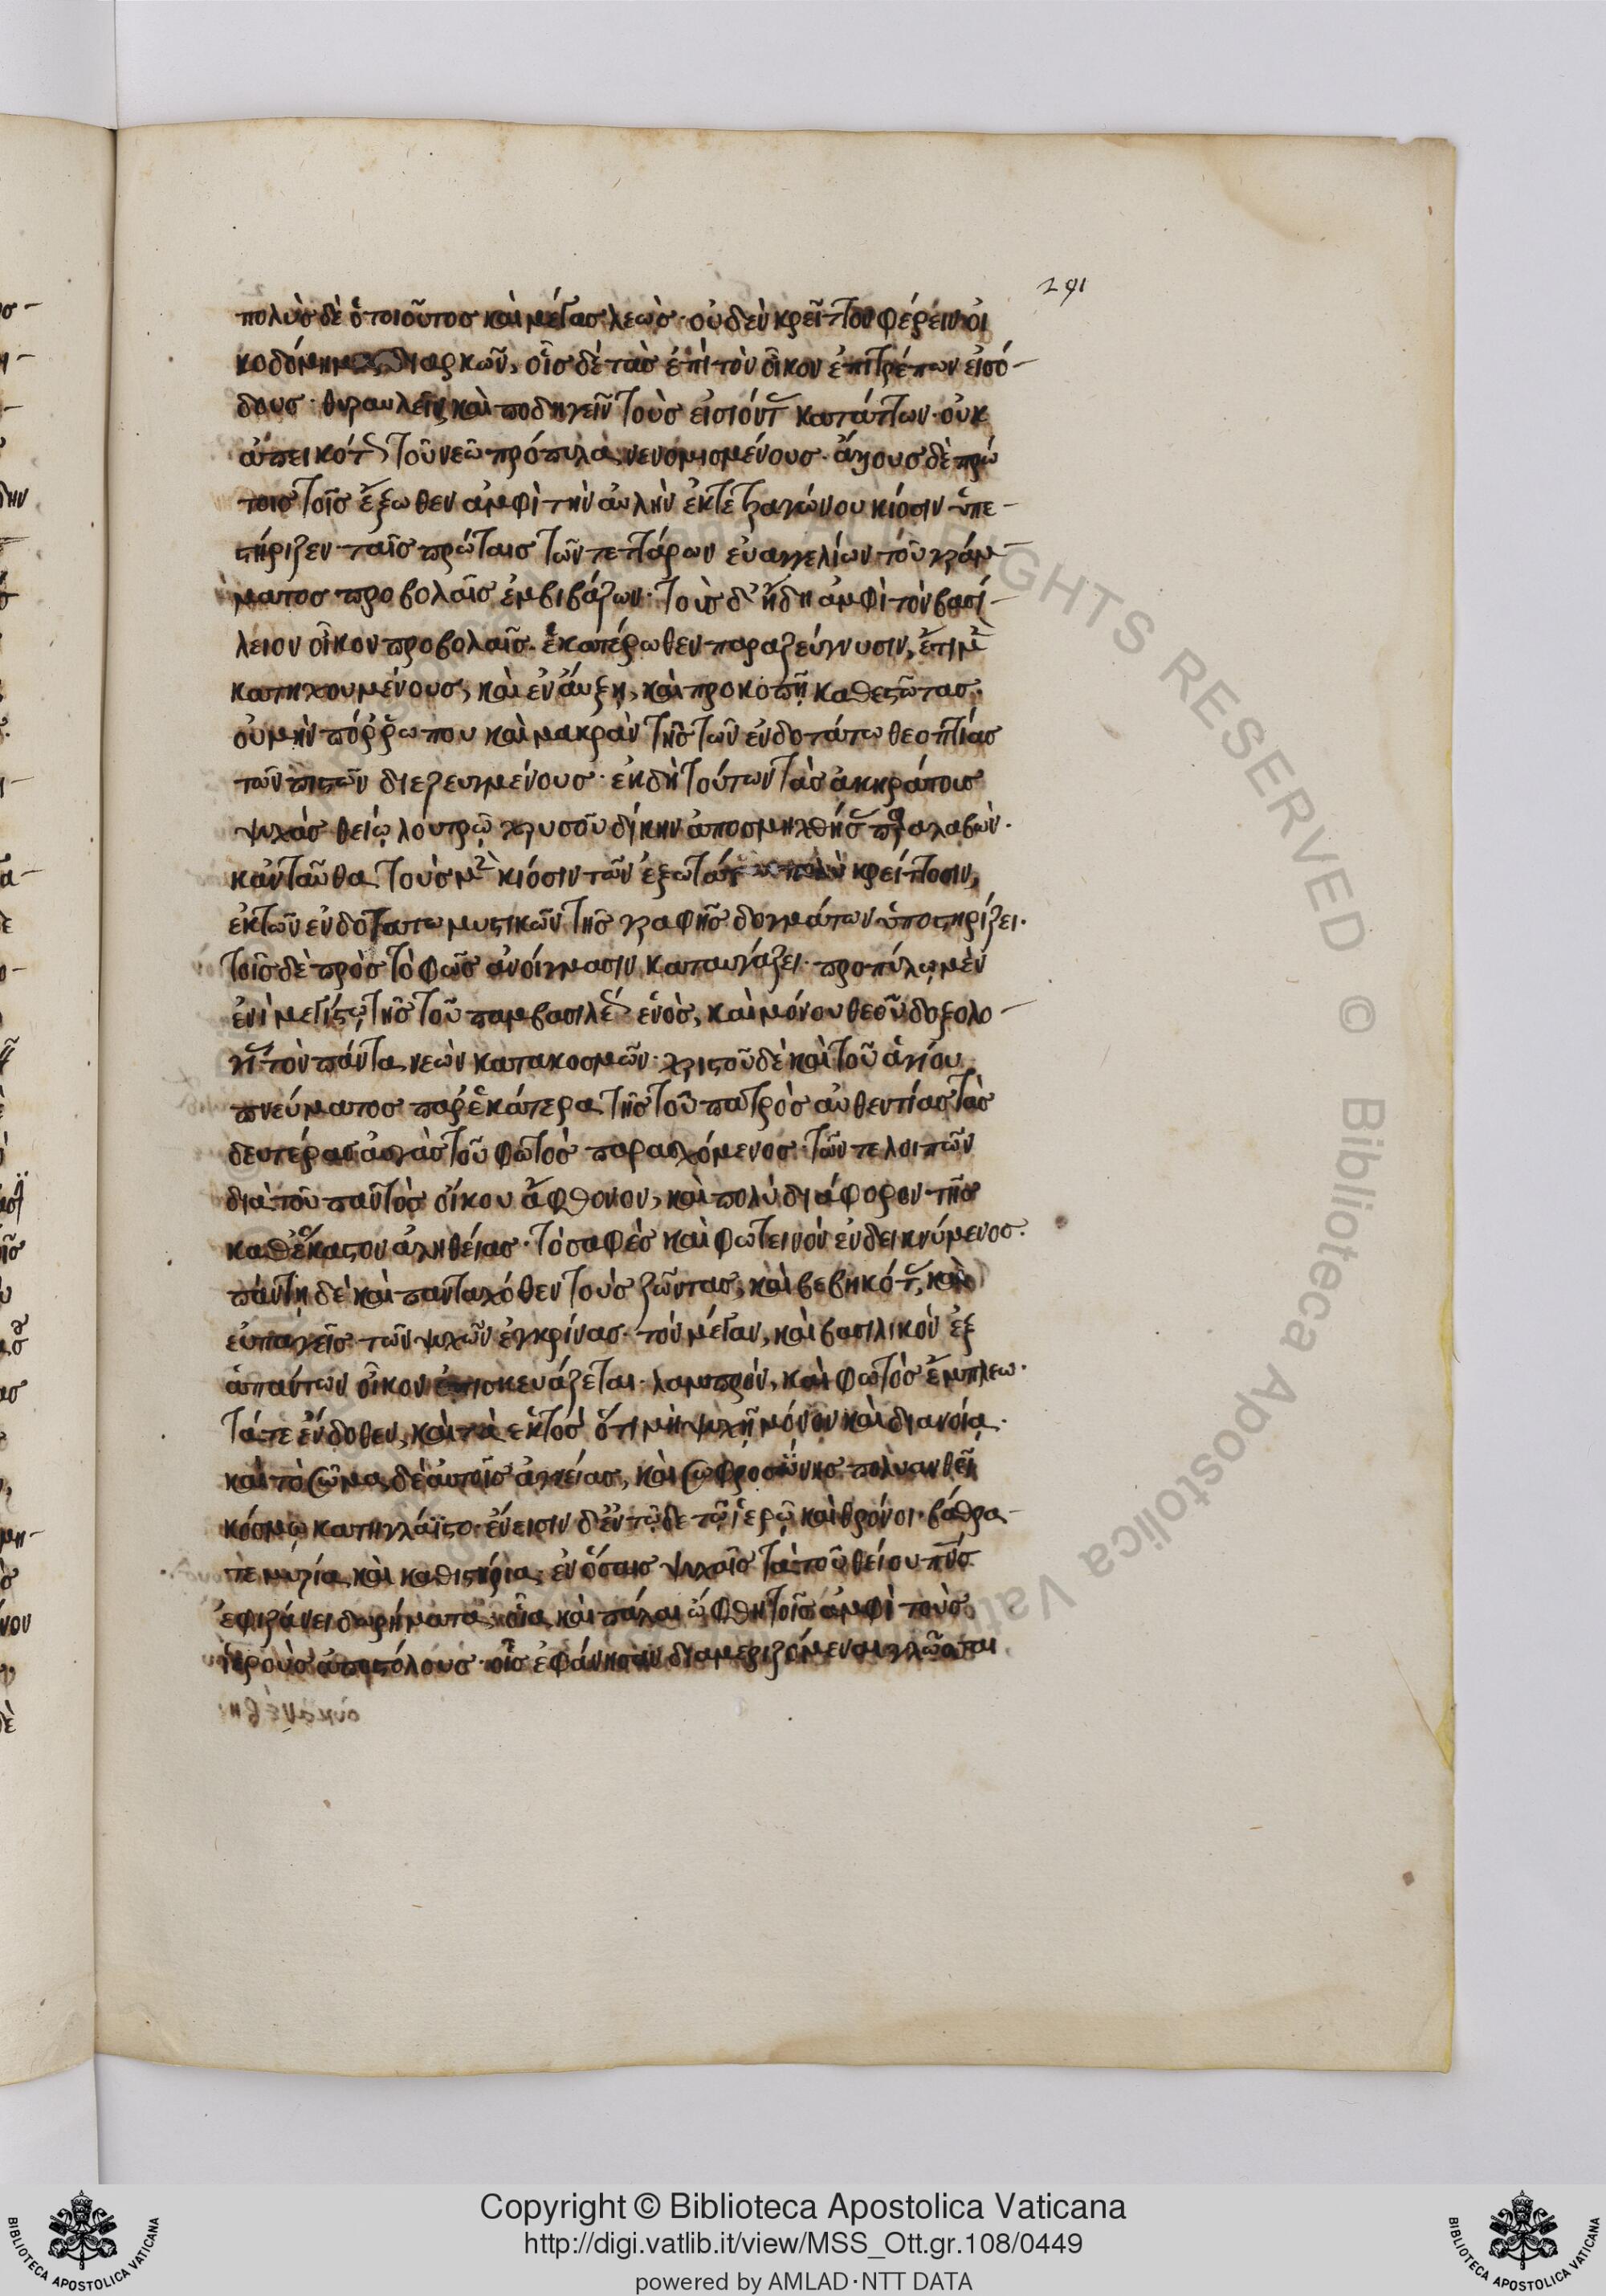 291
πολὺς δὲ ὁ τοιοῦτος καὶ μέγας λεώς· οὐδὲν κρεῖττον φέρειν οἰ
κοδόμημα διαρκῶν, οἷς δὲ τὰς ἐπὶ τὸν οἶκον ἐπιτρέπων εἰσό-
δους· θυραυλεῖν καὶ ποδηγεῖν τοὺς εἰσιόντ κατάττων· οὐκ
ἀπεικότ τοῦ νεῶ πρόπυλα νενομισμένους· ἄλλους δὲ πρώ
τοις τοῖς ἔξωθεν ἀμφὶ τὴν αὐλὴν ἐκ τετραγώνου κίοσιν ὑπε-
στήριζεν ταῖς πρώταις τῶν τεττάρων εὐαγγελίων τοῦ γράμ-
ματος προβολαῖς ἐμβιβάζων· τοὺς δ' ἤδη ἀμφὶ τὸν βασί-
λειον οἶκον προβολαῖς· ἑκατέρωθεν παραζεύγνυσιν, ἔτι μ
κατηχουμένους, καὶ ἐν αὔξη, καὶ προκοπῇ καθεστῶτας·
οὐ μὴν πόρρω που καὶ μακρὰν τῆς τῶν ἐνδοτάτω θεοπτίας
τῶν πιστῶν διεζευγμένους· ἐκ δὴ τούτων τὰς ἀκηράτους
ψυχὰς θείῳ λουτρῷ χρυσοῦ δίκην ἀποσμηχθείσ παραλαβών·
κἀνταῦθα τοὺς μ κίοσιν τῶν ἐξωτάτ πολὺ κρείττοσιν,
ἐκ τῶν ἐνδοτάτω μυστικῶν τῆς γραφῆς δογμάτων ὑποστηρίζει·
τοῖς δὲ πρὸς τὸ φῶς ἀνοίγμασιν καταυγάζει· προπύλῳ μὲν
ἑνὶ μεγίστῳ τῆς τοῦ παμβασιλέ ἑνὸς, καὶ μόνου θεοῦ δοξολο-
γί τὸν πάντα νεὼν κατακοσμῶν· χριστοῦ δὲ καὶ τοῦ ἁγίου
πνεύματος παρ' ἑκάτερα τῆς τοῦ πατρὸς αὐθεντίας τὰς
δευτέρας αὐγὰς τοῦ φωτὸς παρασχόμενος· τῶν τε λοιπῶν
διὰ τοῦ παντὸς οἴκου ἄφθονον, καὶ πολὺ διάφορον τῆς
καθέκαστον ἀληθείας· τὸ σαφὲς καὶ φωτεινὸν ἐνδεικνύμενος·
πάντη δὲ καὶ πανταχόθεν τοὺς ζῶντας, καὶ βεβηκότ, καὶ
εὐπαγεῖς τῶν ψυχῶν ἐγκρίνας· τὸν μέγαν, καὶ βασιλικὸν ἐξ
ἁπάντων οἶκον ἐπισκευάζεται· λαμπρὸν, καὶ φωτὸς ἔμπλεω·
τά τε ἔνδοθεν, καὶ τὰ ἐκτός ὅτι μὴ ψυχῇ μόνον καὶ διανοίᾳ·
καὶ τὸ σῶμα δὲ αὐτοῖς ἁγνείας, καὶ σωφροσύνης πολυανθεῖ
κόσμῳ κατηγλάϊστο· ἔνεισιν δ' ἐν τῷδε τῷ ἱερῷ καὶ θρόνοι· βάθρα
τε μυρία καὶ καθιστήρια· ἐν ὅσαις ψυχαῖς τὰ τοῦ θείου πνς
ἐφιζάνει δωρήματα· οἷα καὶ πάλαι ὤφθη τοῖς ἀμφὶ τοὺς
ἱεροὺς ἀποστόλους· οἷς ἐφάνησαν διαμεριζόμεναι γλῶσσαι